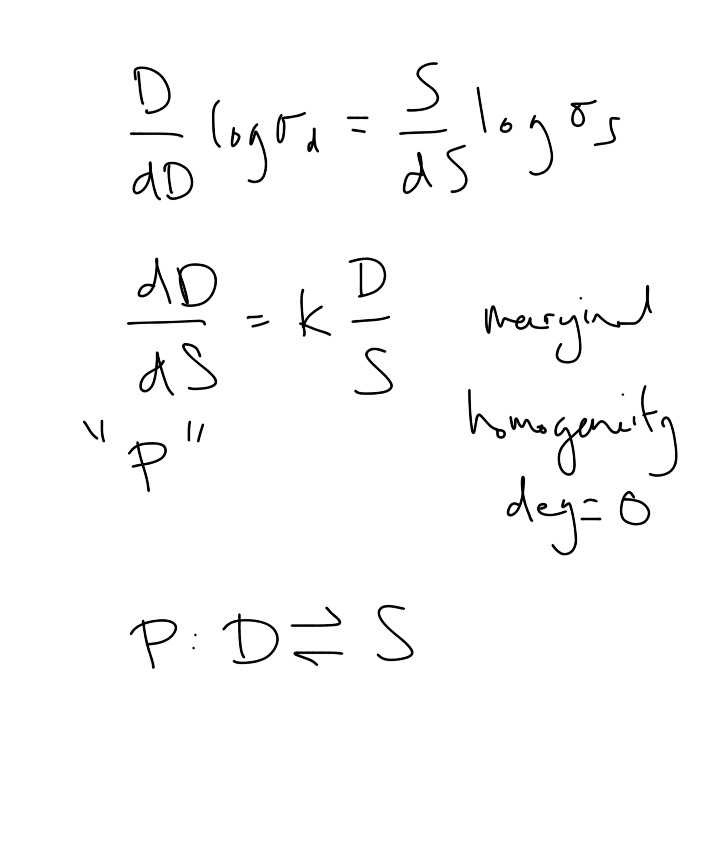 D/dD log σ_d = S/dS log σ_s
dD/dS = k D/S marginal
homogeneity
"P"
deg = 0
P: D ⇌ S